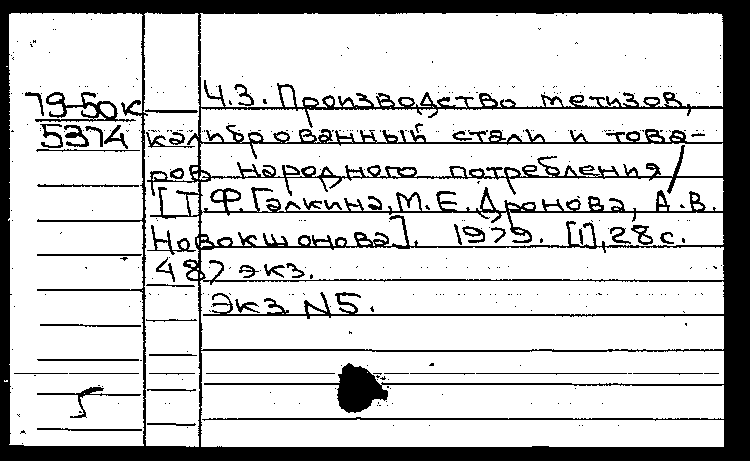 79-50к
5374
Ч.3. Производство метизов,
калиброванный стали и това-
ров народного потребления /
[Т.Ф.Галкина, М.Е.Дронова, А.В.
Новокшонова]. 1979. [1], 28 с.
487 экз.
Экз. N5.
5